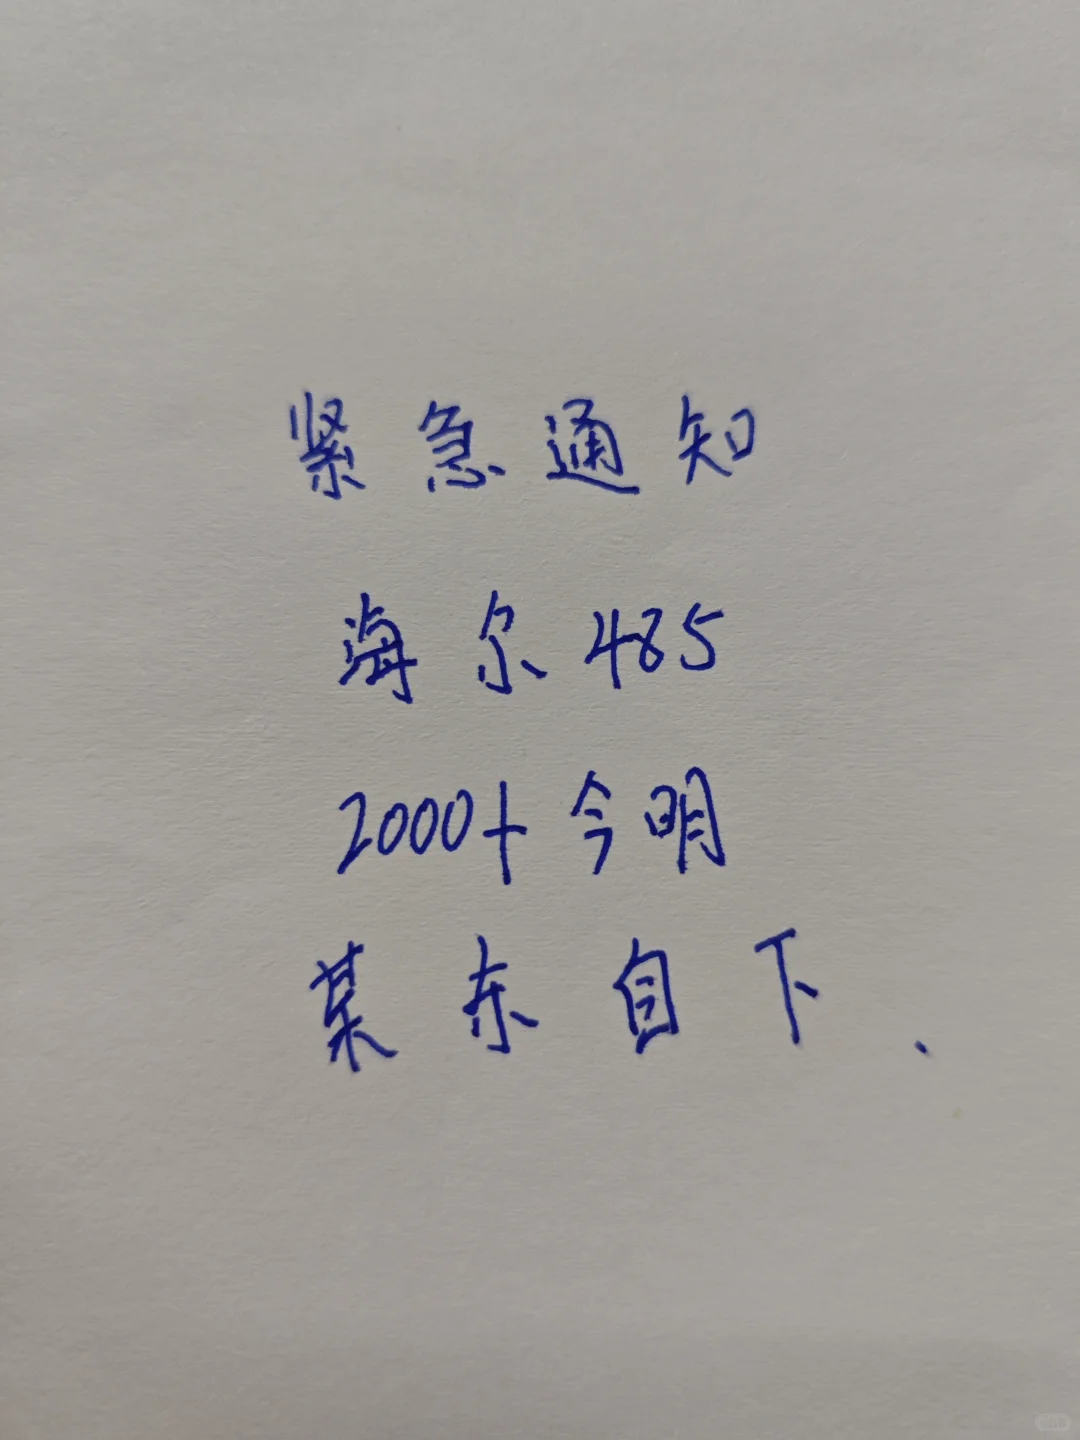 紧急通知
海尔485
2000+今明
某东自下.